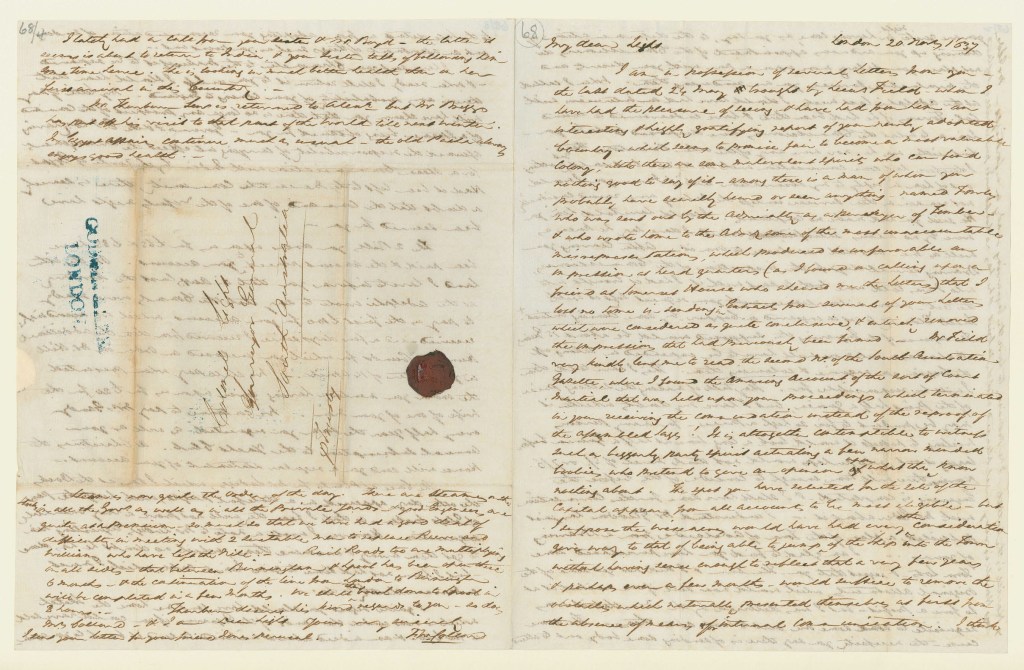 68
My dear Light London 20 Novr 1837
I am in possession of several letters from you -
the last dated 24 May brought by Lieut Field whom I
have had the pleasure of seeing & have had from him an
interesting & highly gratifying report of your newly adopted
Country - which seems to promise fair to become a most valuable
Colony, tho' there are some malevolent spirits who can find
nothing good to say of it - among these is a man of whom you
probably have scarcely heard or seen anything named
who was sent out by the Admiralty as a Purveyor of Timber
& who wrote home to the some of the most unaccountable
misrepresentations, which produced so unfavorable an
impression at head quarters (as I found on calling upon a
friend at Somerset House who shewed me the letters) that I
lost no time in sending Extracts from several of your letters
which were considered as quite conclusive, & entirely removed
the impression that had previously been formed - Mr Field
very kindly lent me to read the second No. of the South Australian
Gazette, where I found the amusing account of the sort of Court
Martial that was held upon your proceedings which terminated
in your receiving the commendation instead of the reproof of
the assembled ! It is altogether contemptible to witness
such a beggarly party spirit actuating a few narrow minded
bodies who pretend to give an opinion upon what they know
nothing about. The spot you have selected for the site of the
Capital appears from all accounts to be most eligible - but
I suppose the wiseacres would have had every other consideration
give way to that of being able to see of the ships from the Town
without having sense enough to reflect that a very few years
& perhaps even a few months would suffice to remove the
obstacles which naturally presented themselves at first from
the absence of means of internal communication. I think
68/4
I lately had a call from your sister & Mr Boyd - the latter it
seems is about to return to India & your sister talks of following him
some time hence. She is looking in much better health than on her
first arrival in the Country.
Mr Thurburn has returned to Alexa. but Mr Briggs
has put off his visit to that part of the world till next winter.
In Egypt affairs continue much as usual - the old Pasha always
enjoys good health. -
Colonel Light
Surveyor General
South Australia
LONDON
Steam is now quite the order of the day. There are steamers
in all the Govt. as well as in all the Private Yards & good Engineers are
quite at a premium - so much so that we have had a good deal of
difficulty in meeting with 2 suitable men to replace Reeves and
Williams who have left the Nile. Rail Roads too are multiplying
on all sides - that between Birmingham & Liverpool has been open these
6 months - & the continuation of the line from London to Birmingham
will be completed in a few months. We shall travel down to Liverpool in
hours. - Thurburn desires his kind regards to you - as does
Mrs Gliddon - & I am Dear Light Yours very sincerely
I send your letter to your friend Jones